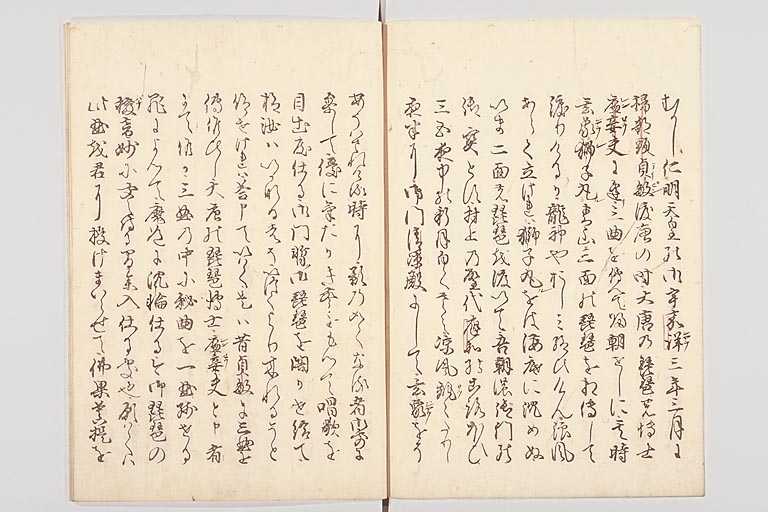 むかし仁明天皇の御宇嘉祥三年三月に
掃部頭貞敏渡唐の時大唐の琵琶の博士
廉妾夫に逢三曲を伝て帰朝せしに其時
玄象獅子丸青山三面の琵琶を相伝して
渡りけるか龍神やおしみ給ひけん浪風
あらく立けれは獅子丸をは海底に沈めぬ
いま二面の琵琶を渡いて吾朝の御門の
御宝とす村上の聖代応和の比ほひ
三五夜中の新月白くさえ涼風颯々たりし
夜半に御門清涼殿にして玄象をそ
あそはされける時に影のことくなる者御前に
参して優に気たかき声をもつて唱歌を
目出度仕る御門暫御琵琶を閣かせ給て
抑汝はいかなるものそいつくより来れるそと
仰せけれは答申ていはく是は昔貞敏に三曲を
伝侍し大唐の琵琶博士廉妾夫と申者
にて候か三曲の中に秘曲を一曲残せる
罪によつて魔道に沈淪仕る今御琵琶の
撥音妙に聞え侍る間参入仕る処也願くは
此曲を君に授けまいらせて仏果菩提を